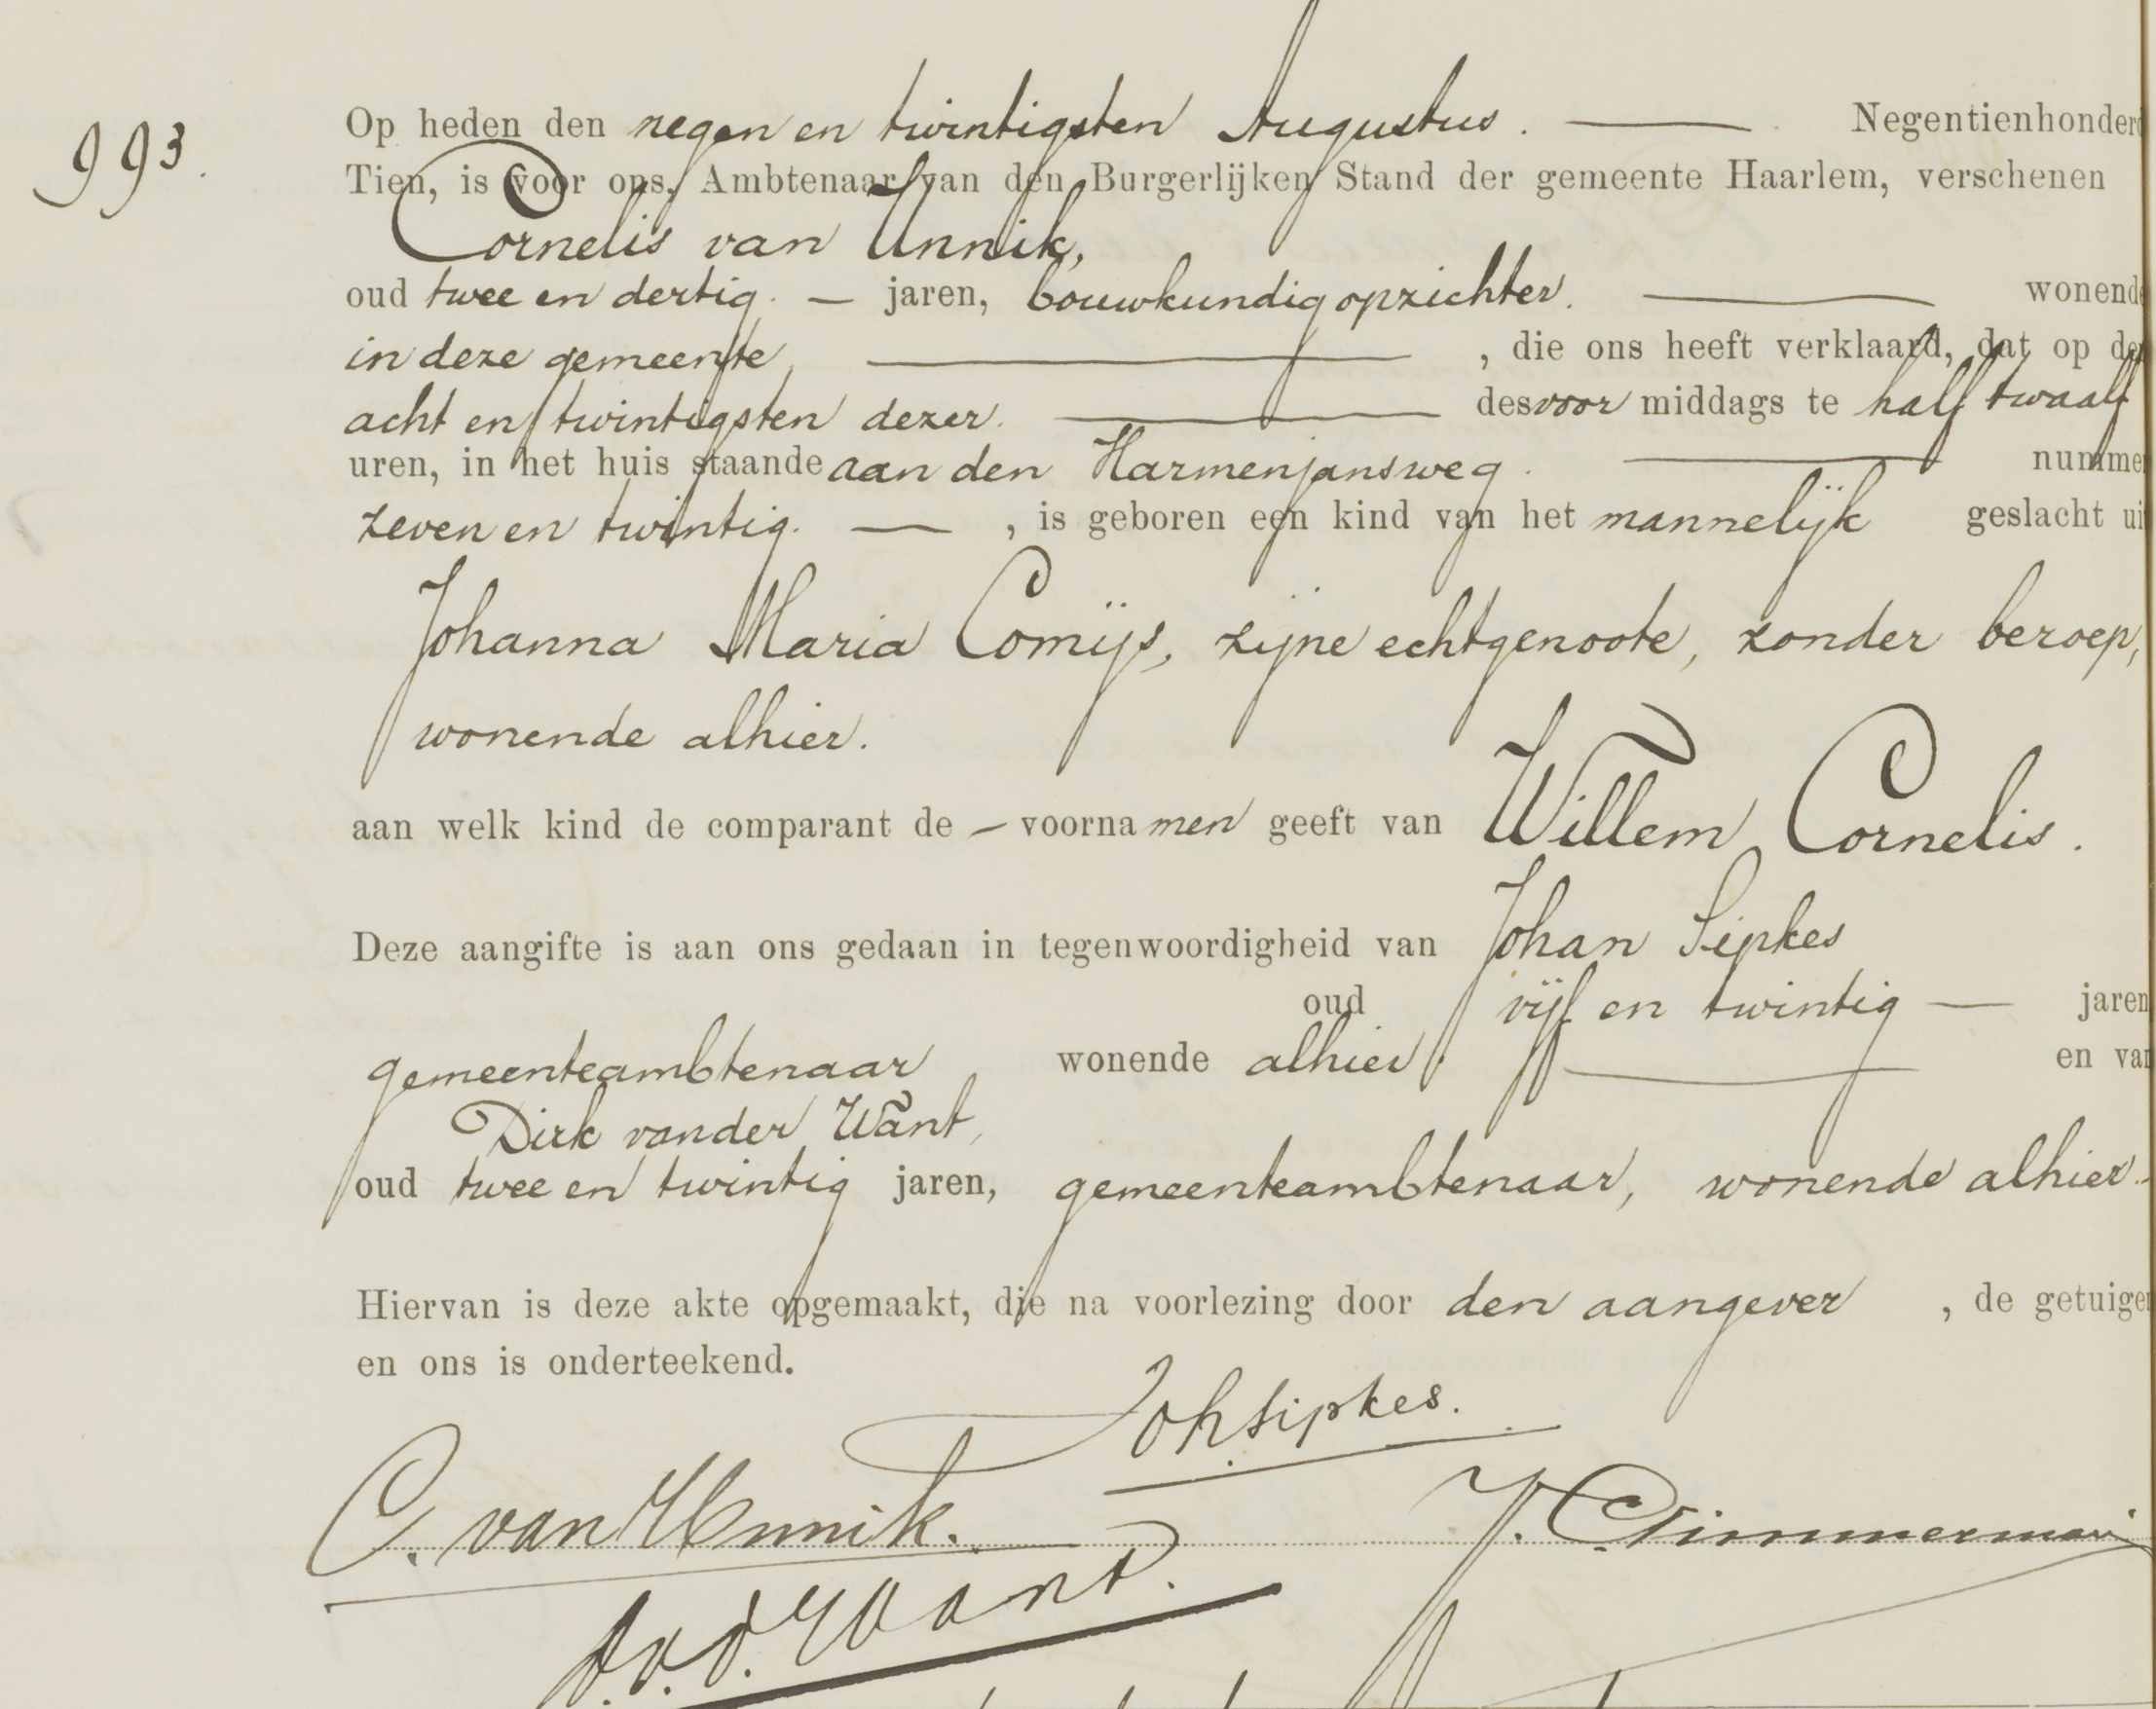 993.
Op heden den negen en twintigsten Augustus. — Negentienhonderd
Tien, is voor ons, Ambtenaar van den Burgerlijken Stand der gemeente Haarlem, verschenen
Cornelis van Unnik,
oud twee en dertig. — jaren, bouwkundig opzichter. — wonende
in deze gemeente, — , die ons heeft verklaard, dat op den
acht en twintigsten dezer. — des voor middags te half twaalf
uren, in het huis staande aan den Harmenjansweg. — nummer
zeven en twintig. — , is geboren een kind van het mannelijk geslacht uit
Johanna Maria Comijs, zijne echtgenoote, zonder beroep,
wonende alhier.
aan welk kind de – voornamen geeft van Willem Cornelis.
Deze aangifte is aan ons gedaan in tegenwoordigheid van Johan Sipkes
oud vijf en twintig — jaren
gemeenteambtenaar wonende alhier. — en van
Dirk van der Want,
oud twee en twintig jaren, gemeenteambtenaar, wonende alhier.
Hiervan is deze akte opgemaakt, die na voorlezing door den aangever , de getuigen
en ons is onderteekend.
Joh Sipkes.
C. van Unnik. J. Timmerman
D. v. d. Want.